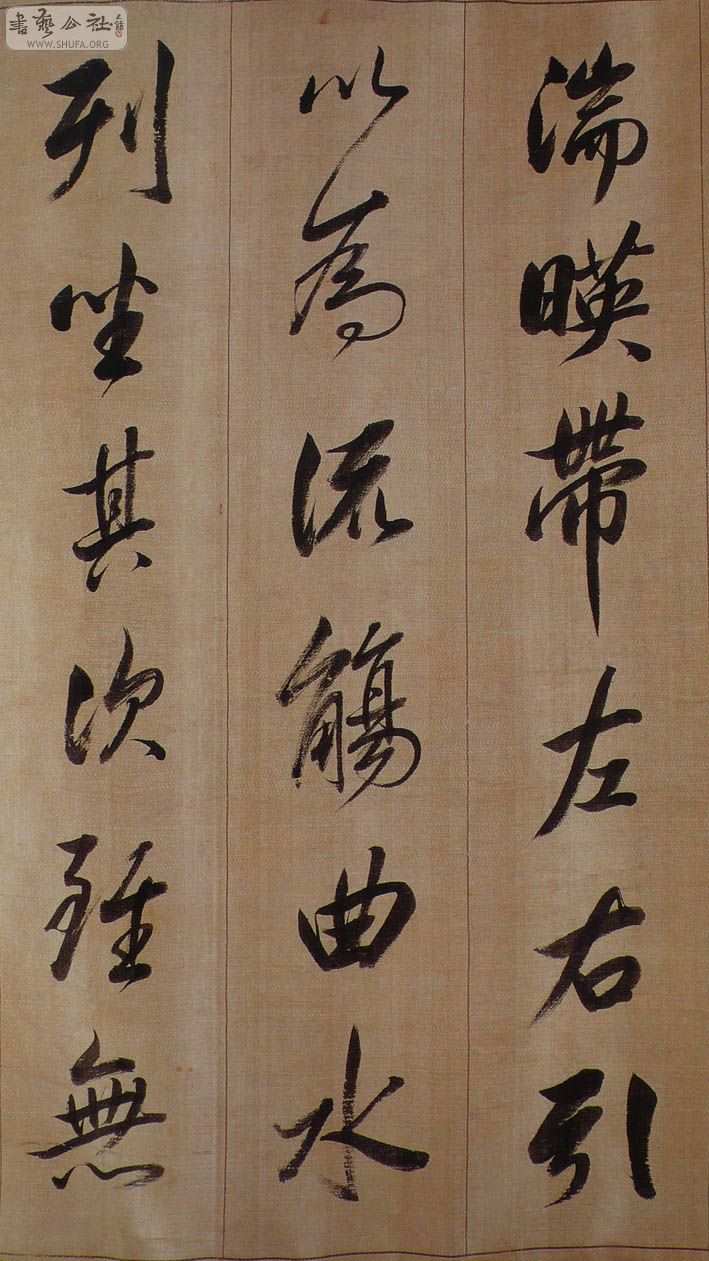 湍暎帶左右引
以為流觴曲水
列坐其次雖無
書藝公社
WWW.SHUFA.ORG